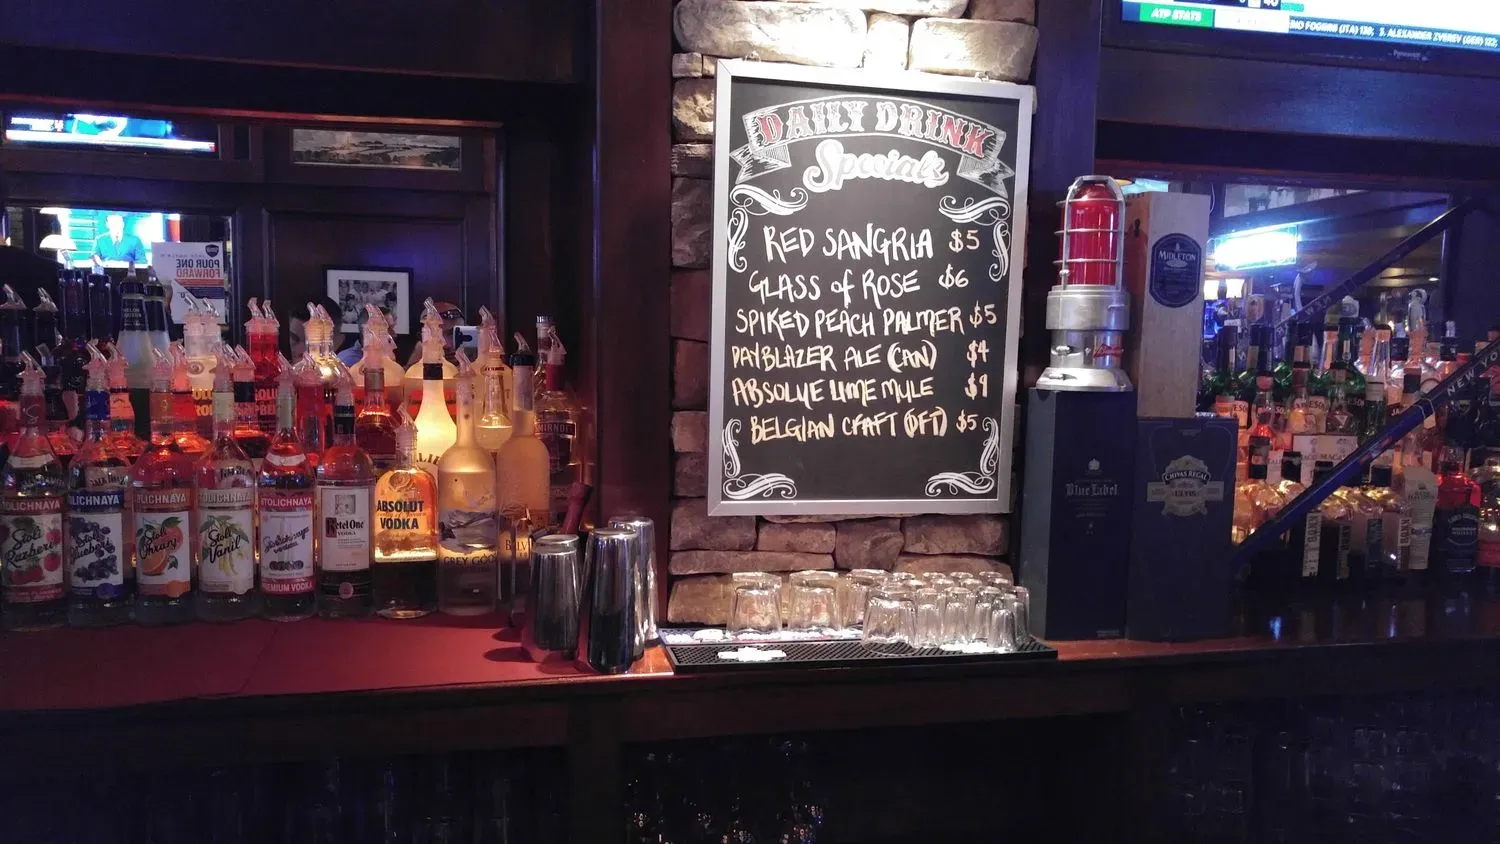 ATP STATS
NIO FOGNINI (ITA) 130; 5. ALEXANDER ZVEREV (GER) 122;
Panasonic
DAILY DRINK
Specials
RED SANGRIA $5
GLASS of ROSE $6
SPIKED PEACH PALMER $5
DAYBLAZER ALE (CAN) $4
ABSOLUE LIME MULE $9
BELGIAN CRAFT (DFT) $5
POUR ONE
FORWARD
MIDLETON
Blue Label
CHIVAS REGAL
ULTIS
NEW YO
STOLICHNAYA
Stoli
Razberi
OLICHNAYA
Stoli
Blueberi
OLICHNAYA
Stoli
Ohranj
OLICHNAYA
Stoli
Vanil
STOLICHNAYA
PREMIUM VODKA
Ketel One
VODKA
ABSOLUT
VODKA
GREY GOO
BELV
SMIRNO